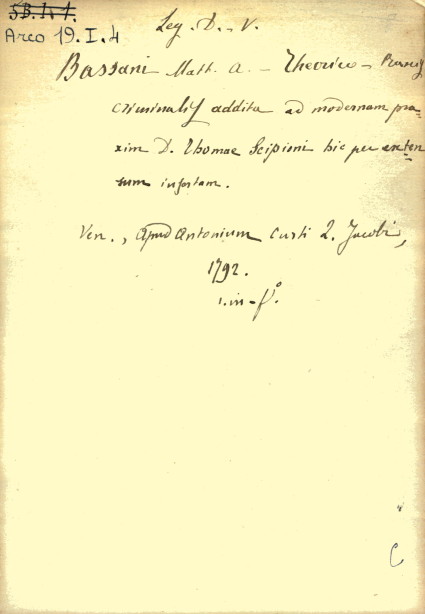 5B.I.7.
Arco 19.I.4
Leg. D. - V.
Bassani Math. A. - Theorico - Praxis
criminalis addita ad modernam pra-
xim D. Thomae Scipioni hic per exten-
sum
Ven., Apud Antonium Curti Q. Jacobi,
1792.
1. in-fº.
C